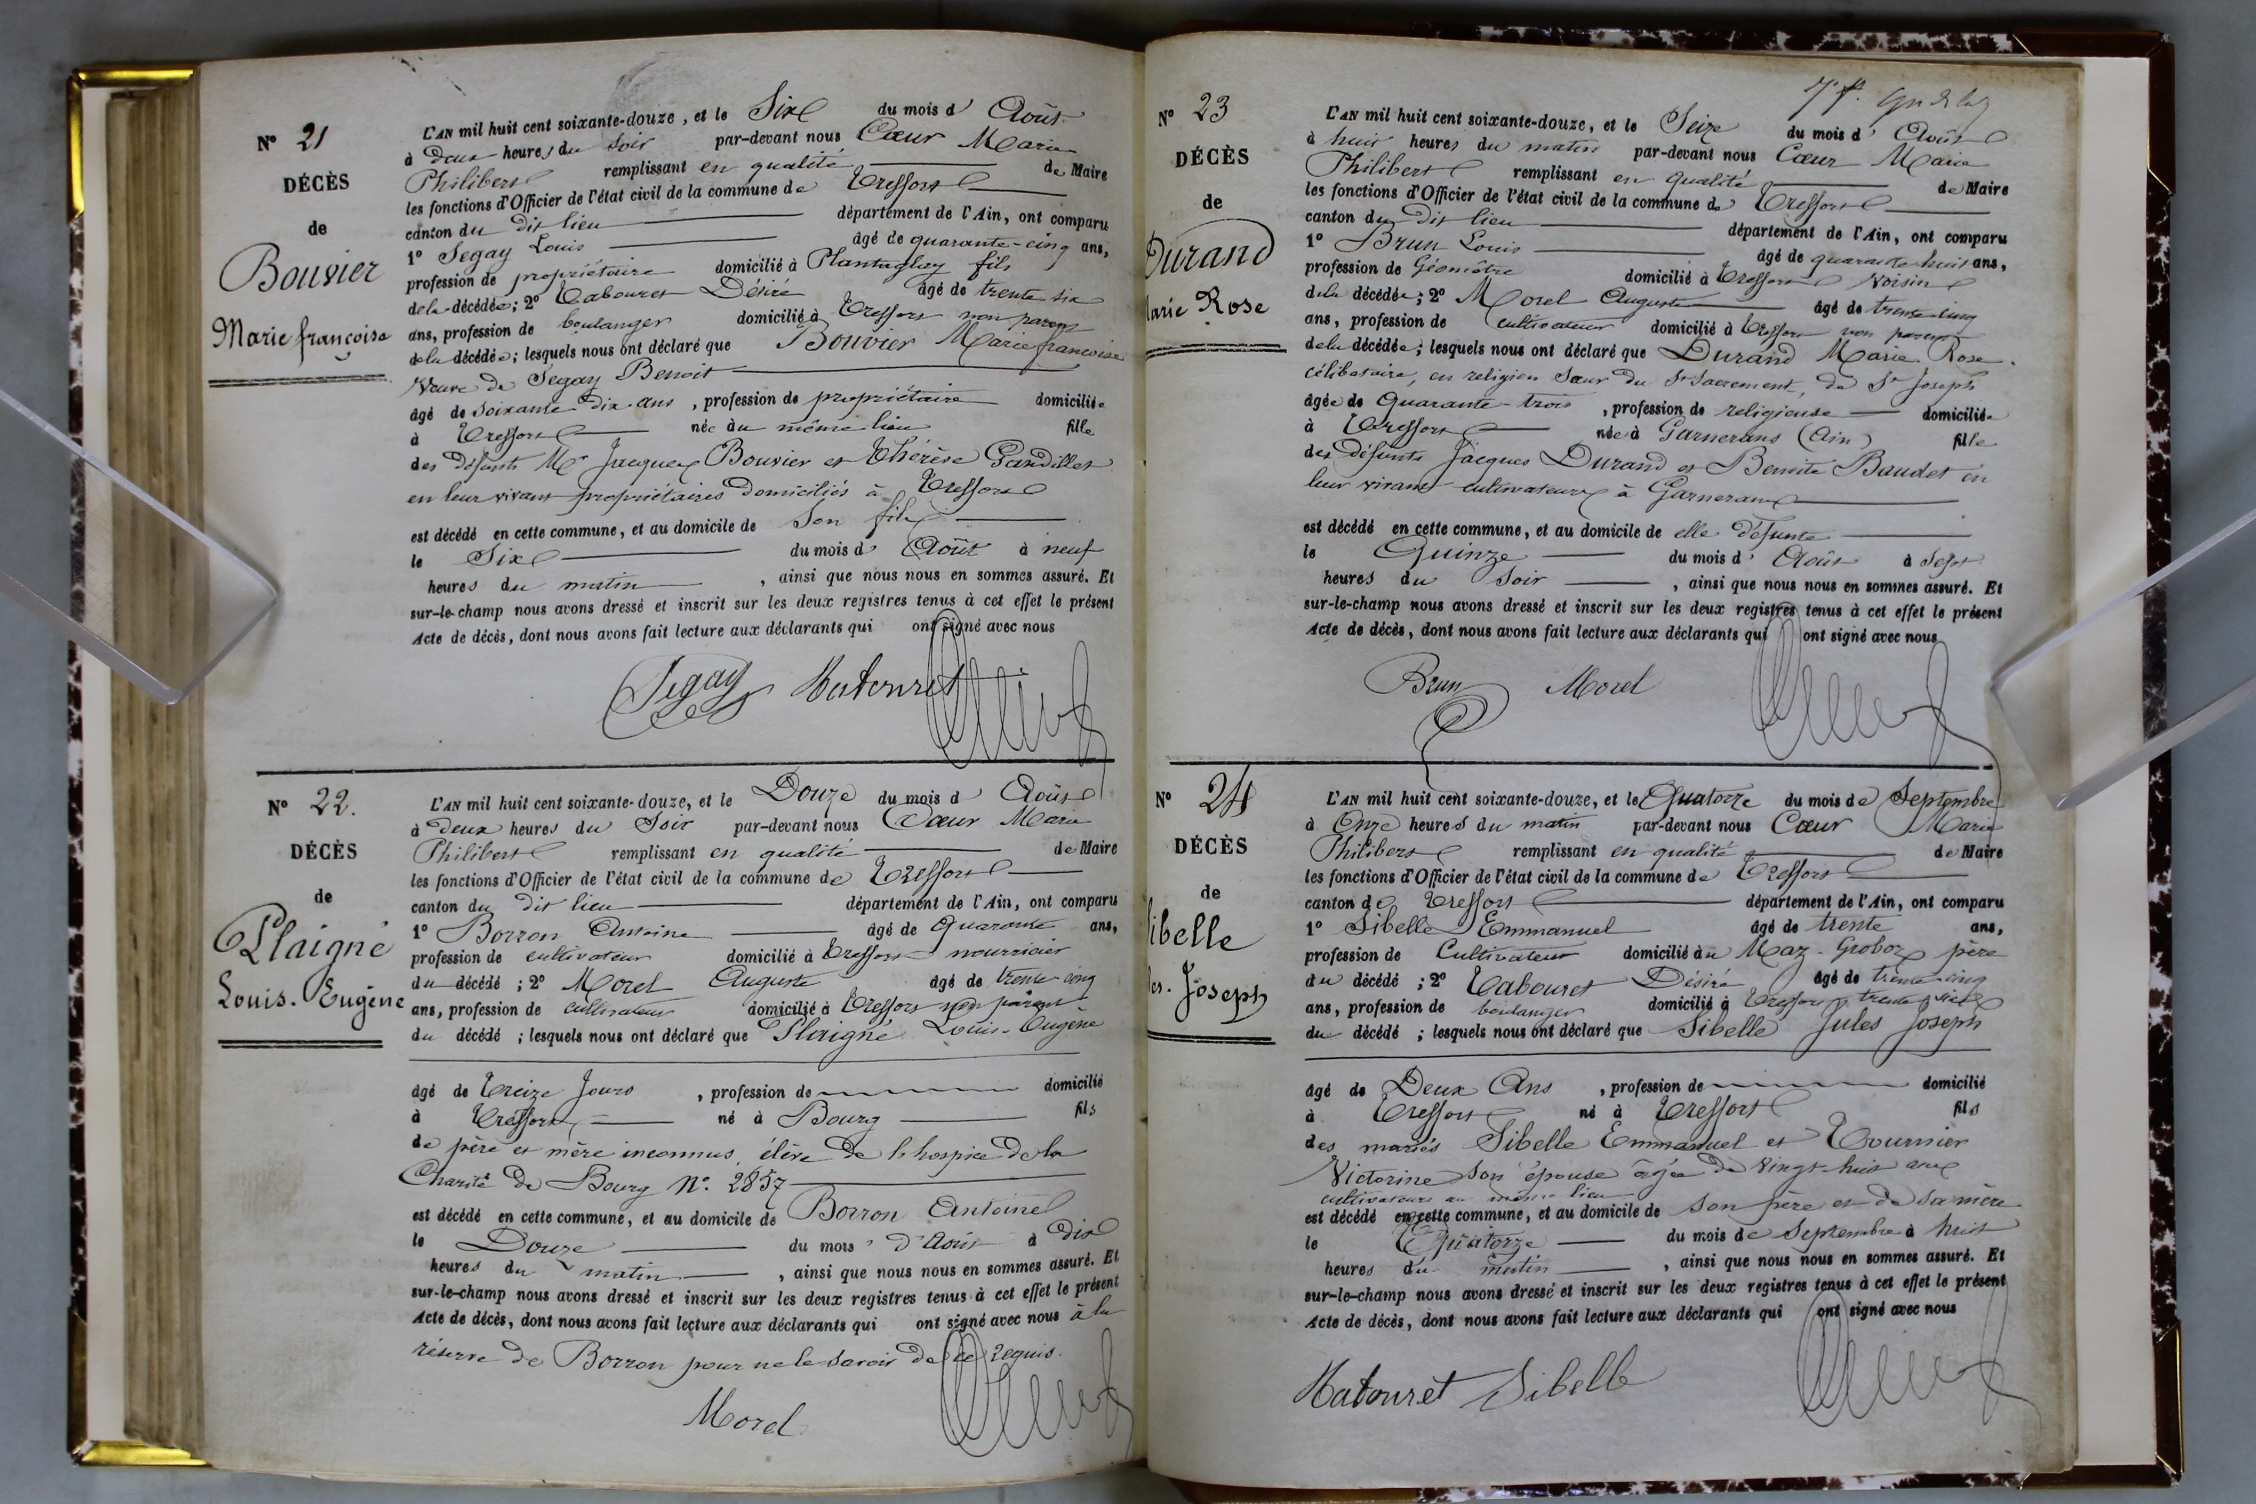 N° 21
DÉCÈS
de
Bouvier
Marie françoise
L'AN mil huit cent soixante-douze, et le Six du mois d' Août
à deux heures du soir par-devant nous Cœur Marie
Philibert remplissant en qualité de Maire
les fonctions d'Officier de l'état civil de la commune de Treffort
canton du dit lieu département de l'Ain, ont comparu
1° Segay Louis âgé de quarante-cinq ans,
profession de propriétaire domicilié à Plantaglay fils
de la décédée; 2° Tabouret Désiré âgé de trente six
ans, profession de boulanger domicilié à Treffort non parent
de la décédée; lesquels nous ont déclaré que Bouvier Marie françoise
Veuve de Segay Benoit
âgé de soixante dix ans, profession de propriétaire domiciliée
à Treffort née au même lieu fille
des défunts Mr Jacques Bouvier et Thérèse Gandillet
en leur vivant propriétaires domiciliés à Treffort
est décédé en cette commune, et au domicile de Son fils
le Six du mois d' Août à neuf
heures du matin, ainsi que nous nous en sommes assuré. Et
sur-le-champ nous avons dressé et inscrit sur les deux registres tenus à cet effet le présent
Acte de décès, dont nous avons fait lecture aux déclarants qui ont signé avec nous
Segay Tabouret
N° 22.
DÉCÈS
de
Plaigné
Louis-Eugène
L'AN mil huit cent soixante-douze, et le Douze du mois d' Août
à deux heures du Soir par-devant nous Cœur Marie
Philibert remplissant en qualité de Maire
les fonctions d'Officier de l'état civil de la commune de Treffort
canton du dit lieu département de l'Ain, ont comparu
1° Borron Antoine âgé de Quarante ans,
profession de cultivateur domicilié à Treffort nourricier
du décédé; 2° Morel Auguste âgé de trente-cinq
ans, profession de cultivateur domicilié à Treffort non parent
du décédé; lesquels nous ont déclaré que Plaigné Louis-Eugène
âgé de Treize Jours, profession de domicilié
à Treffort né à Bourg fils
de père et mère inconnus, élève de l'hospice de la
Charité de Bourg N°. 2857
est décédé en cette commune, et au domicile de Borron Antoine
le Douze du mois d'Août à Dix
heures du matin, ainsi que nous nous en sommes assuré. Et
sur-le-champ nous avons dressé et inscrit sur les deux registres tenus à cet effet le présent
Acte de décès, dont nous avons fait lecture aux déclarants qui ont signé avec nous à la
réserve de Borron pour ne le savoir de ce requis.
Morel
N° 23
DÉCÈS
de
Durand
Marie Rose
L'AN mil huit cent soixante-douze, et le Seize du mois d' Août
à huit heures du matin par-devant nous Cœur Marie
Philibert remplissant en qualité de Maire
les fonctions d'Officier de l'état civil de la commune de Treffort
canton du dit lieu département de l'Ain, ont comparu
1° Brun Louis âgé de quarante huit ans,
profession de Géomètre domicilié à Treffort Voisin
de la décédée; 2° Morel Auguste âgé de trente cinq
ans, profession de cultivateur domicilié à Treffort non parent
de la décédée; lesquels nous ont déclaré que Durand Marie Rose.
célibataire, en religion Sœur du St Sacrement, de St Joseph
âgée de Quarante-trois, profession de religieuse domiciliée
à Treffort née à Garnerans (Ain) fille
des défunts Jacques Durand et Benoite Baudet en
leur vivant cultivateurs à Garnerans
est décédé en cette commune, et au domicile de elle défunte
le Quinze du mois d' Août à Sept
heures du Soir, ainsi que nous nous en sommes assuré. Et
sur-le-champ nous avons dressé et inscrit sur les deux registres tenus à cet effet le présent
Acte de décès, dont nous avons fait lecture aux déclarants qui ont signé avec nous
Brun Morel
N° 24
DÉCÈS
de
Sibelle
Jles. Joseph
L'AN mil huit cent soixante-douze, et le Quatorze du mois de Septembre
à Onze heures du matin par-devant nous Cœur Marie
Philibert remplissant en qualité de Maire
les fonctions d'Officier de l'état civil de la commune de Treffort
canton de Treffort département de l'Ain, ont comparu
1° Sibelle Emmanuel âgé de trente ans,
profession de Cultivateur domicilié au Maz-Groboz père
du décédé; 2° Tabouret Désiré âgé de trente-cinq
ans, profession de boulanger domicilié à Treffort
du décédé; lesquels nous ont déclaré que Sibelle Jules Joseph
âgé de Deux Ans, profession de domicilié
à Treffort né à Treffort fils
des mariés Sibelle Emmanuel et Tournier
Victorine son épouse âgée de Vingt-huit ans
cultivateurs au même lieu
est décédé en cette commune, et au domicile de son père et de sa mère
le Quatorze du mois de Septembre à huit
heures du matin, ainsi que nous nous en sommes assuré. Et
sur-le-champ nous avons dressé et inscrit sur les deux registres tenus à cet effet le présent
Acte de décès, dont nous avons fait lecture aux déclarants qui ont signé avec nous
Tabouret Sibelle